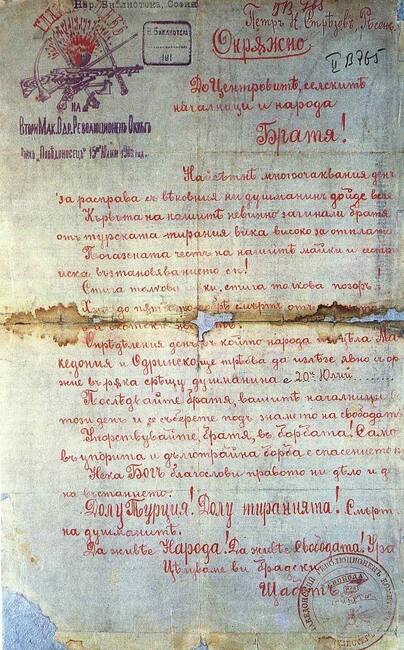 Нар. Библиотека, София
Н. Библиотека
Окряжно
II В 765
НА
ВТОРИ МАК. ОДР. РЕВОЛЮЦИОНЕН ОКРЪГЪ
До Центровитѣ, селскитѣ
началници и народа
Братя!
Най-сетнѣ многоочаквания день
за расправа съ вѣковния ни душманин дойде вече
Кръвьта на нашитѣ невинно загинали братя
отъ турската тирания вика високо за отплата
Погазената честь на нашитѣ майки и сестри
иска възтановяванието си!
Стига толкова мки, стига толкова позоръ!
смърть отъ
Опредѣления день, въ който народа изъ цѣла Ма-
кедония и Одринско ще трѣбва да излѣзе явно съ ор-
жие въ рѫка срѣщу душманина е 20й Юлий
Последвайте, братя, вашитѣ началници въ
този день и се съберете подъ знамето на свободата
Упорствувайте, братя, въ борбата! Само
въ упорита и дълготрайна борба е спасението н
Нека Богъ благослови правото ни дѣло и д
на въстанието.
Долу Турция! Долу тиранията! Смърть
на душманитѣ.
Да живѣе Народа! Да живѣе Свободата! Ура
Цѣлуваме ви братски
Щабътъ
СВОБОДА